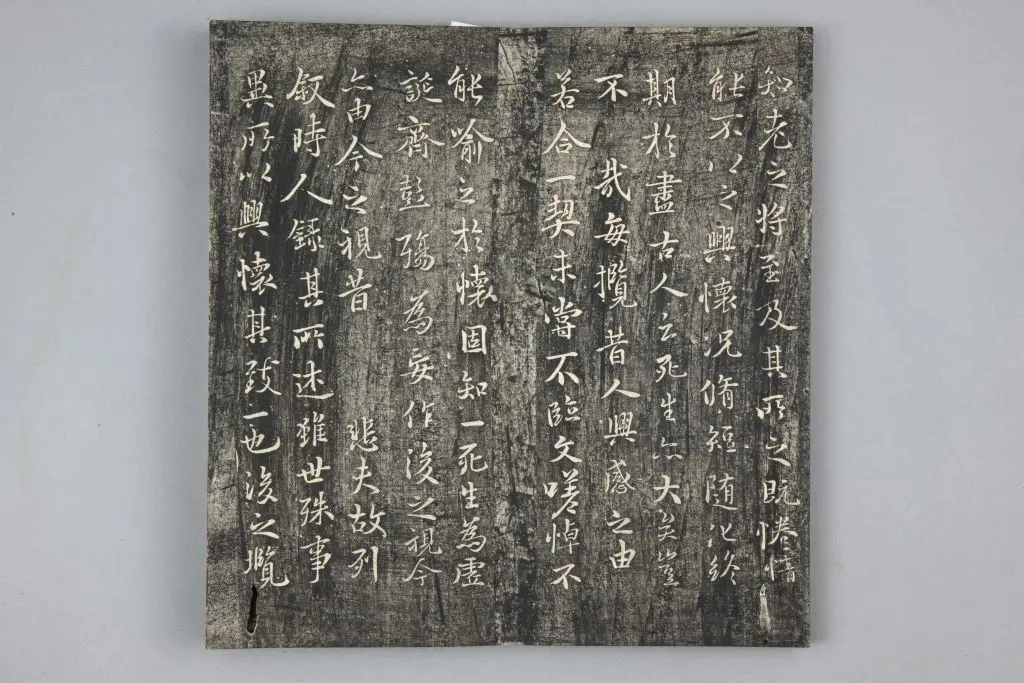 知老之將至及其所之既惓情
能不以之興懷況脩短随化終
期於盡古人云死生亦大矣豈
不 哉每攬昔人興感之由
若合一契未嘗不臨文嗟悼不
能喻之於懷固知一死生為虛
誕齊彭殤為妄作後之視今
亦由今之視昔 悲夫故列
叙時人錄其所述雖世殊事
異所以興懷其致一也後之攬